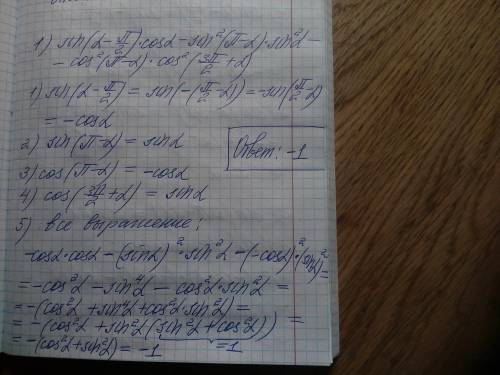 1) sin(α - π/2)·cosα - sin²(π-α)·sin²α -
- cos²(π-α)·cos²(3π/2+α)
1) sin(α - π/2) = sin(-(π/2-α)) = -sin(π/2-α)
= -cosα
2) sin(π-α) = sinα
3) cos(π-α) = -cosα
4) cos(3π/2+α) = sinα
Ответ: -1
5) все выражение:
-cosα·cosα - (sinα)²·sin²α - (-cosα)²·(sinα)² =
= -cos²α - sin⁴α - cos²α·sin²α =
= -(cos²α + sin⁴α + cos²α·sin²α) =
= -(cos²α + sin²α(sin²α + cos²α)) =
= -(cos²α + sin²α) = -1
=1